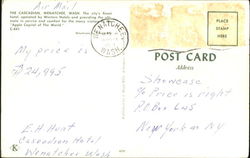 Air Mail
THE CASCADIAN, WENATCHEE, WASH. The city's finest
hotel, operated by Western Hotels and providing the ulti-
mate in service and comfort for the many visitors to the
"Apple Capital of the World."
C-641
WENATCHEE
WASH.
PLACE
STAMP
HERE
POST CARD
Address
My price is
$24,995
E.H. Hent
Cascadian Hotel
Wenatchee Wash
Showcase
% Price is right
PO Box 645
New York NY
K